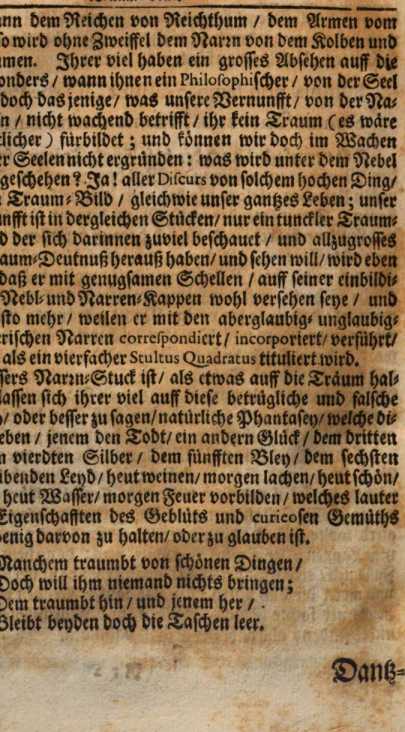 ann dem Reichen von Reichthum / dem Armen vom
so wird ohne Zweiffel dem Narrn von dem Kolben und
men. Ihrer viel haben ein grosses Absehen auff die
onders / wann ihnen ein Philosophischer / von der Seel
doch das jenige / was unsere Vernunfft / von der Na-
n / nicht wachend betrifft / ihr kein Traum (es wäre
licher) fürbildet; und können wir doch im Wachen
er Seelen nicht ergründen: was wird unter dem Nebel
geschehen? Ja! aller Discurs von solchem hochen Ding /
Traum-Bild / gleichwie unser gantzes Leben; unser
unfft ist in dergleichen Stücken / nur ein tunckler Traum-
d der sich darinnen zuviel beschauet / und allzugrosses
aum-Deutnuß herauß haben / und sehen will / wird eben
daß er mit genugsamen Schellen / auff seiner einbildi-
Nebl- und Narren-Kappen wohl versehen seye / und
sto mehr / weilen er mit den aberglaubig- unglaubig-
rischen Narren correspondiert / incorporiert / verführt /
als ein vierfacher Stultus Quadratus tituliert wird.
sers Narrn-Stuck ist / als etwas auff die Träum hal-
lassen sich ihrer viel auff diese betrügliche und falsche
/ oder besser zu sagen / natürliche Phantasey / welche di-
eben / jenem den Todt / ein andern Glück / dem dritten
n vierdten Silber / dem fünfften Bley / dem sechsten
ibenden Leyd / heut weinen / morgen lachen / heut schön /
heut Wasser / morgen Feuer vorbilden / welches lauter
Eigenschafften des Geblüts und curieosen Gemüths
wenig darvon zu halten / oder zu glauben ist.
Manchem traumbt von schönen Dingen /
Doch will ihm niemand nichts bringen;
Dem traumbt hin / und jenem her /
Bleibt beyden doch die Taschen leer.
Dantz-